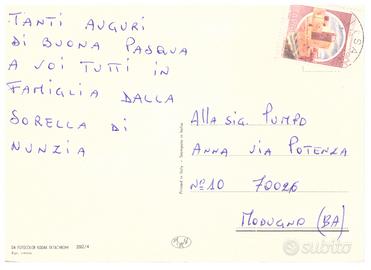 TANTI AUGURI
DI BUONA PASQUA
A VOI TUTTI IN
FAMIGLIA DALLA
SORELLA DI
NUNZIA
Alla SIG. PUMPO
ANNA VIA POTENZA
N=10 70026
MODUGNO (BA)
DA FOTOCOLOR KODAK EKTACHROME 2002/4
Printed in Italy
subito